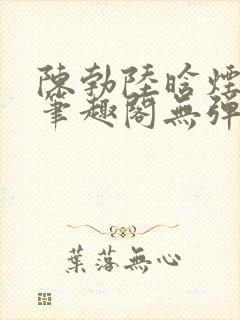 陳勃陸晗煙
筆趣閣無彈
葉落無心